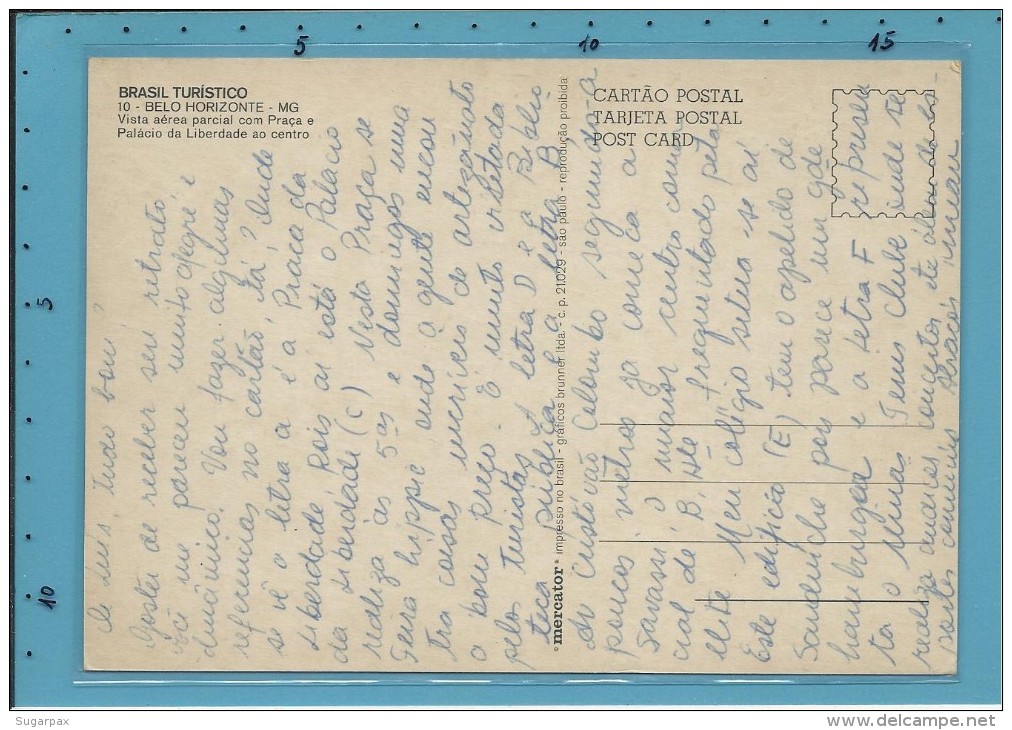 BRASIL TURÍSTICO
10 - BELO HORIZONTE - MG
Vista aérea parcial com Praça e
Palácio da Liberdade ao centro
CARTÃO POSTAL
TARJETA POSTAL
POST CARD
mercator impresso no brasil - gráficos brunner ltda. - c. p. 21.029 - são paulo - reprodução proibida
tudo bom?
Gostei de receber seu retrato
você me pareceu muito alegre e
dinâmico. Vou fazer algumas
referencias no cartão, tá? Onde
se vê o letra a é a Praça da
Liberdade Pois aí está o Palacio
da Liberdade (C) Nesta Praça se
realiza as 5as e domingos uma
Feira hippie onde a gente encon
tra coisas incriveis de artezanato
a bom preço. É muito visitada
pelos turistas letra D e a Biblio
teca Publica letra B
Av Cristóvão Colombo seguindo-a
poucos metros ja começa a
Savassi o maior centro comer
cial de B. Hte frequentado pela
elite Meu colégio situa-se aí
Este edifício (E) tem o apelido de
Sanduiche pois parece um gde
hamburger e a letra F represen
ta o Minas Tenis Clube onde se
realiza encontos
5
10
15
5
10
Sugarpax
www.delcampe.net